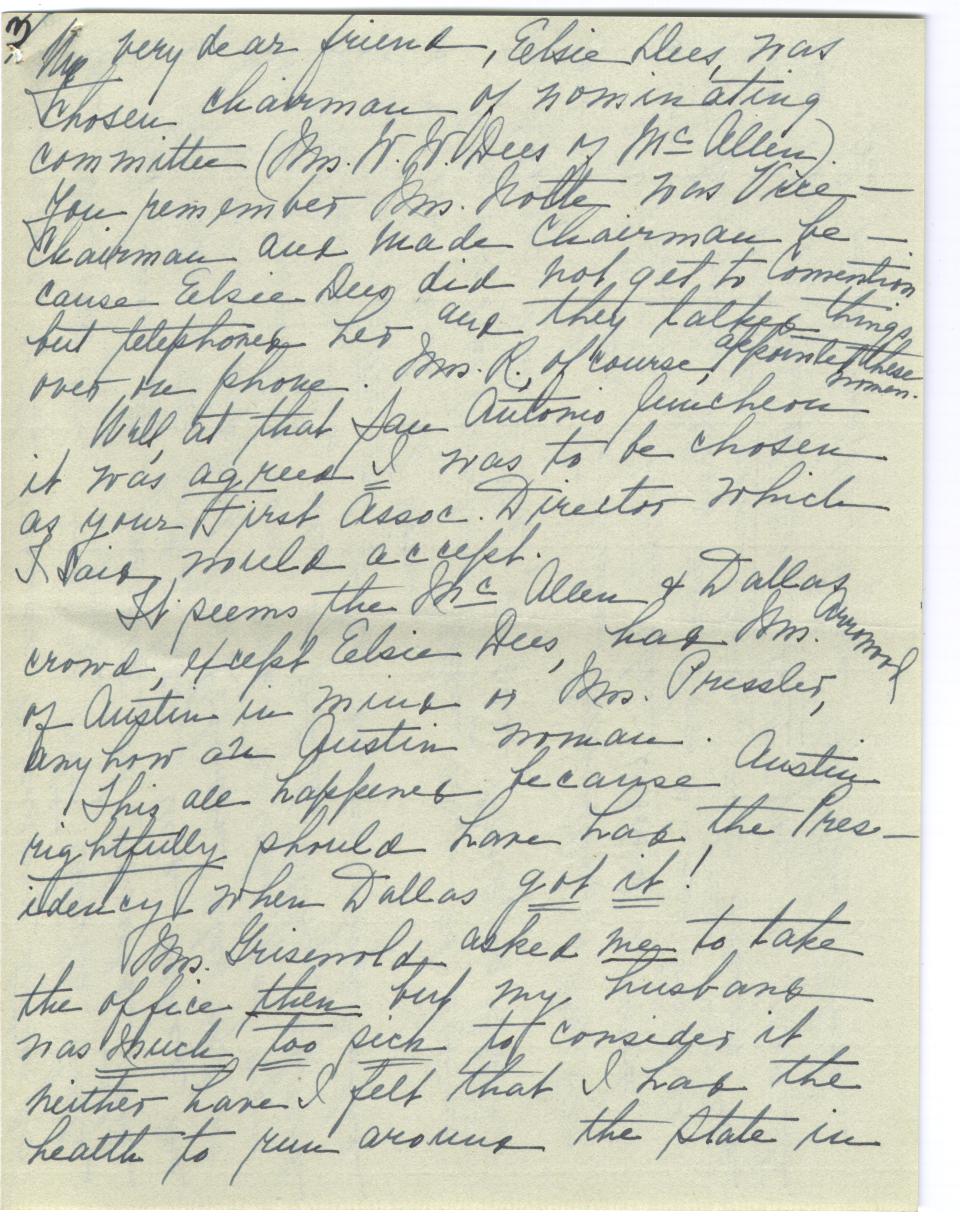 3/
My very dear friend, Elsie Dees, was
chosen chairman of nominating
committee (Mrs. W. W. Dees of McAllen).
You remember Mrs. Notte was Vice-
Chairman and made Chairman be-
cause Elsie Dees did not get to Convention
but telephoned her and they talked things
over on phone. Mrs. R., of course, appointed these women.
Well, at that San Antonio luncheon
it was agreed I was to be chosen
as your First Assoc. Director which
I said would accept.
It seems the McAllen & Dallas
crowd, except Elsie Dees, had Mrs.
of Austin in mind or Mrs. Pressler,
anyhow an Austin woman.
This all happened because Austin
rightfully should have had the Pres-
idency when Dallas got it!
Mrs. Griswold asked me to take
the office then but my husband
was much too sick to consider it
neither have I felt that I had the
health to run around the State in